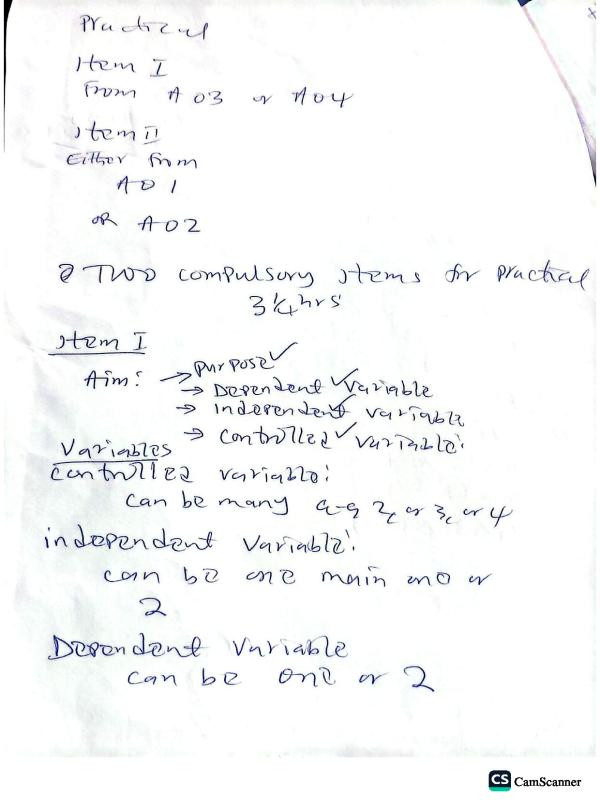 Practical
Item I
From A03 or A04
Item II
Either from
A01
OR A02
2 TWO compulsory items for practical
3¼hrs
Item I
Aim: → purpose ✓
→ Dependent ✓ variable
→ independent ✓ variable
→ controlled ✓ variable:
Variables
controlled variable:
can be many e-g 2, or 3, or 4
independent variable:
can be one main or
2
Dependent variable
can be one or 2
CS CamScanner